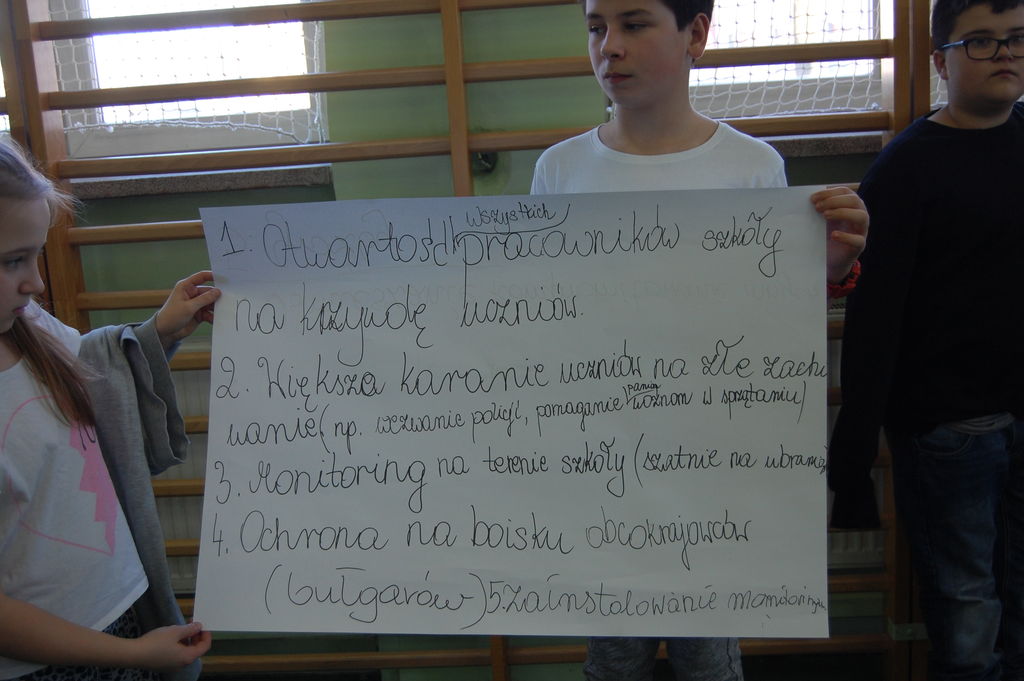 1. Otwartość wszystkich pracowników szkoły
na krzywdę uczniów.
2. Większa karanie uczniów na złe zacho
wanie (np. wezwanie policji, pomaganie paniom woźnom w sprzątaniu)
3. Monitoring na terenie szkoły (szatnie na ubrania
4. Ochrona na boisku obcokrajowców
(bułgarów) 5. zainstalowanie